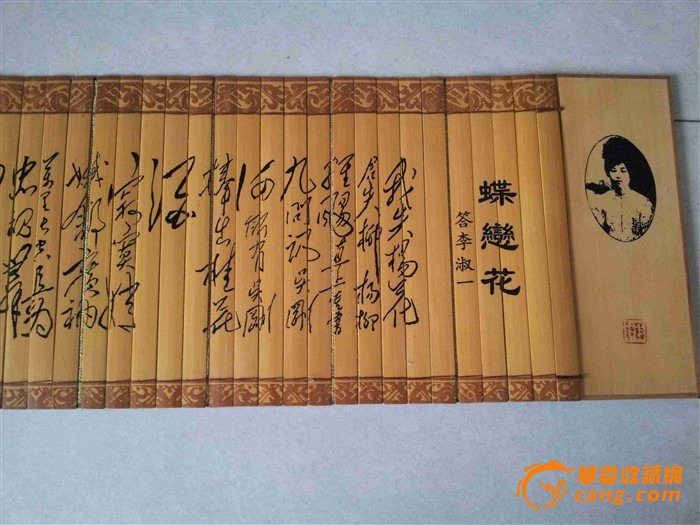 蝶戀花
答李淑一
我失楊花
君失柳楊柳
輕颺直上重霄
九問訊吳剛
何所有吳剛
捧出桂花
酒
寂寞嫦
娥舒廣袖
萬里長空且為
忠魂舞
華夏收藏網
cang.com